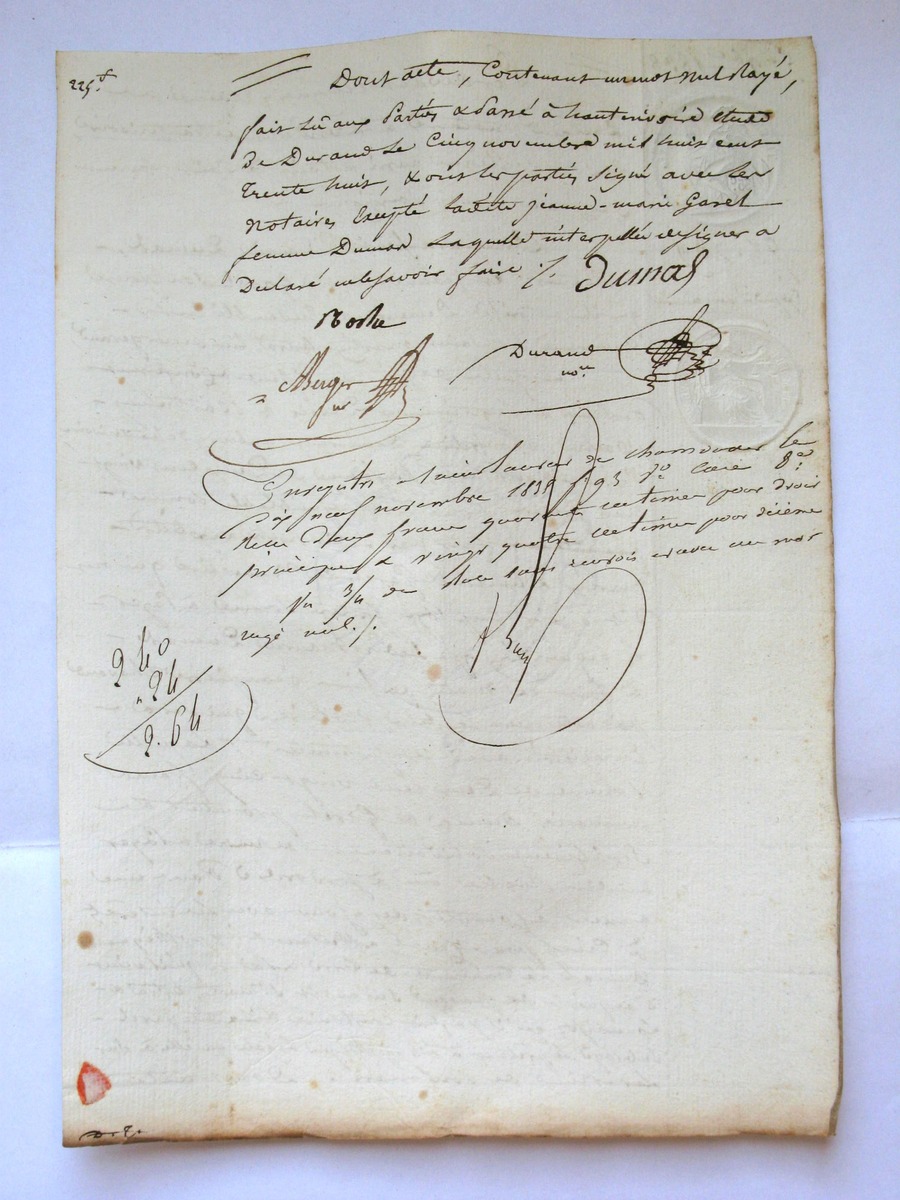 225.f
Dont acte, Contenant un mot nul Rayé,
fait Lû aux Parties & Passé à hautrivoire étude
de Durand Le Cinq novembre mil huit cent
trente huit, & ont les parties signé avec les
Notaires Excepté ladite jeanne-marie Garel
femme Dumas Laquelle interpellée de signer a
Déclaré ne le savoir faire ./.
Dumas
Durand
nore
Berger
nre
Enregistré à Saint Laurent de chamousset le
dix neuf novembre 1838 f° 93 Vo Case 8
Reçu deux francs quarante centimes pour droit
principal & vingt quatre centimes pour dixième
3/4 de sans renvois avec un mot
rayé nul ./.
2 40
" 24
2. 64